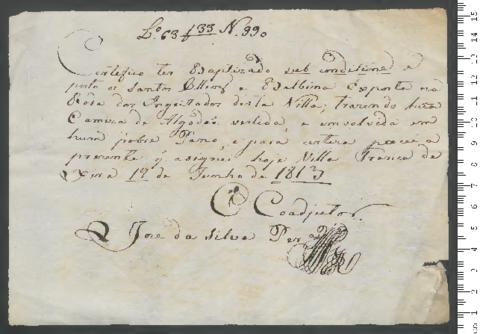 Lº 63 f 33 N. 990
Certifico ter Baptizado sub conditione e
posto os Santos Olleos, a Exalbina Exposta na
Roda dos Engeitados desta Villa, trazendo huma
Camiza de Algodão vestida, e emvolvida em
hum pobre Pano, e para
prezente q asignei hoje Villa Franca de
Xira 19 de Junho de 1813
O Coadjutor
Joze da Silva